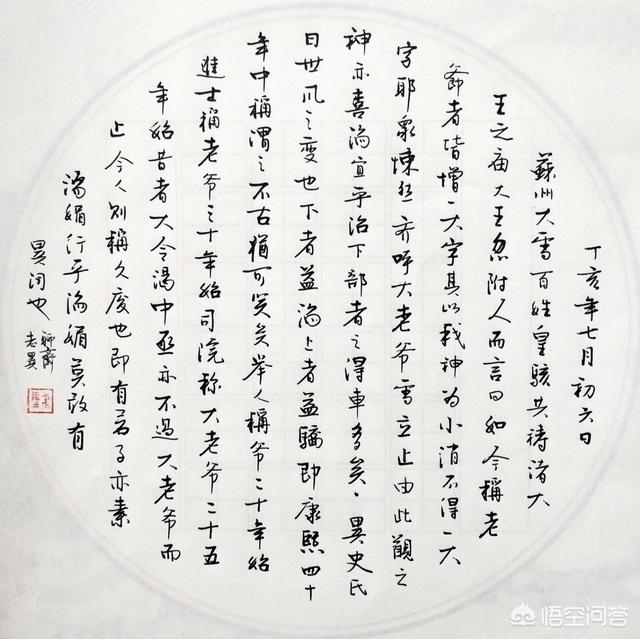 丁亥年七月初六日
蘇州大雪百姓皇駭共祷诸大
王之庙大王忽附人而言曰如今稱老
爺者皆增一大字其以我神为小消不得一大
字耶眾悚然齐呼大老爷雪立止由此觀之
神亦喜谄宜乎治下部者之得車多矣異史氏
曰世风之变也下者益谄上者益驕即康熙四十
年中稱谓之不古猶可笑矣举人稱爷二十年始
進士稱老爷三十年始司院称大老爷二十五
年始昔者大令謁中丞亦不過大老爷而
止今人则稱久廢也即有君子亦素
谄媚行乎谄媚莫敢有
異词也
聊齋
志異
悟空问答